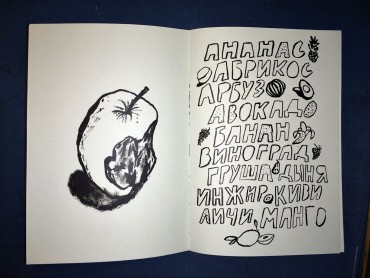 АНАНАС
АБРИКОС
АРБУЗ
АВОКАДО
БАНАН
ВИНОГРАД
ГРУША ДЫНЯ
ИНЖИР КИВИ
ЛИЧИ МАНГО